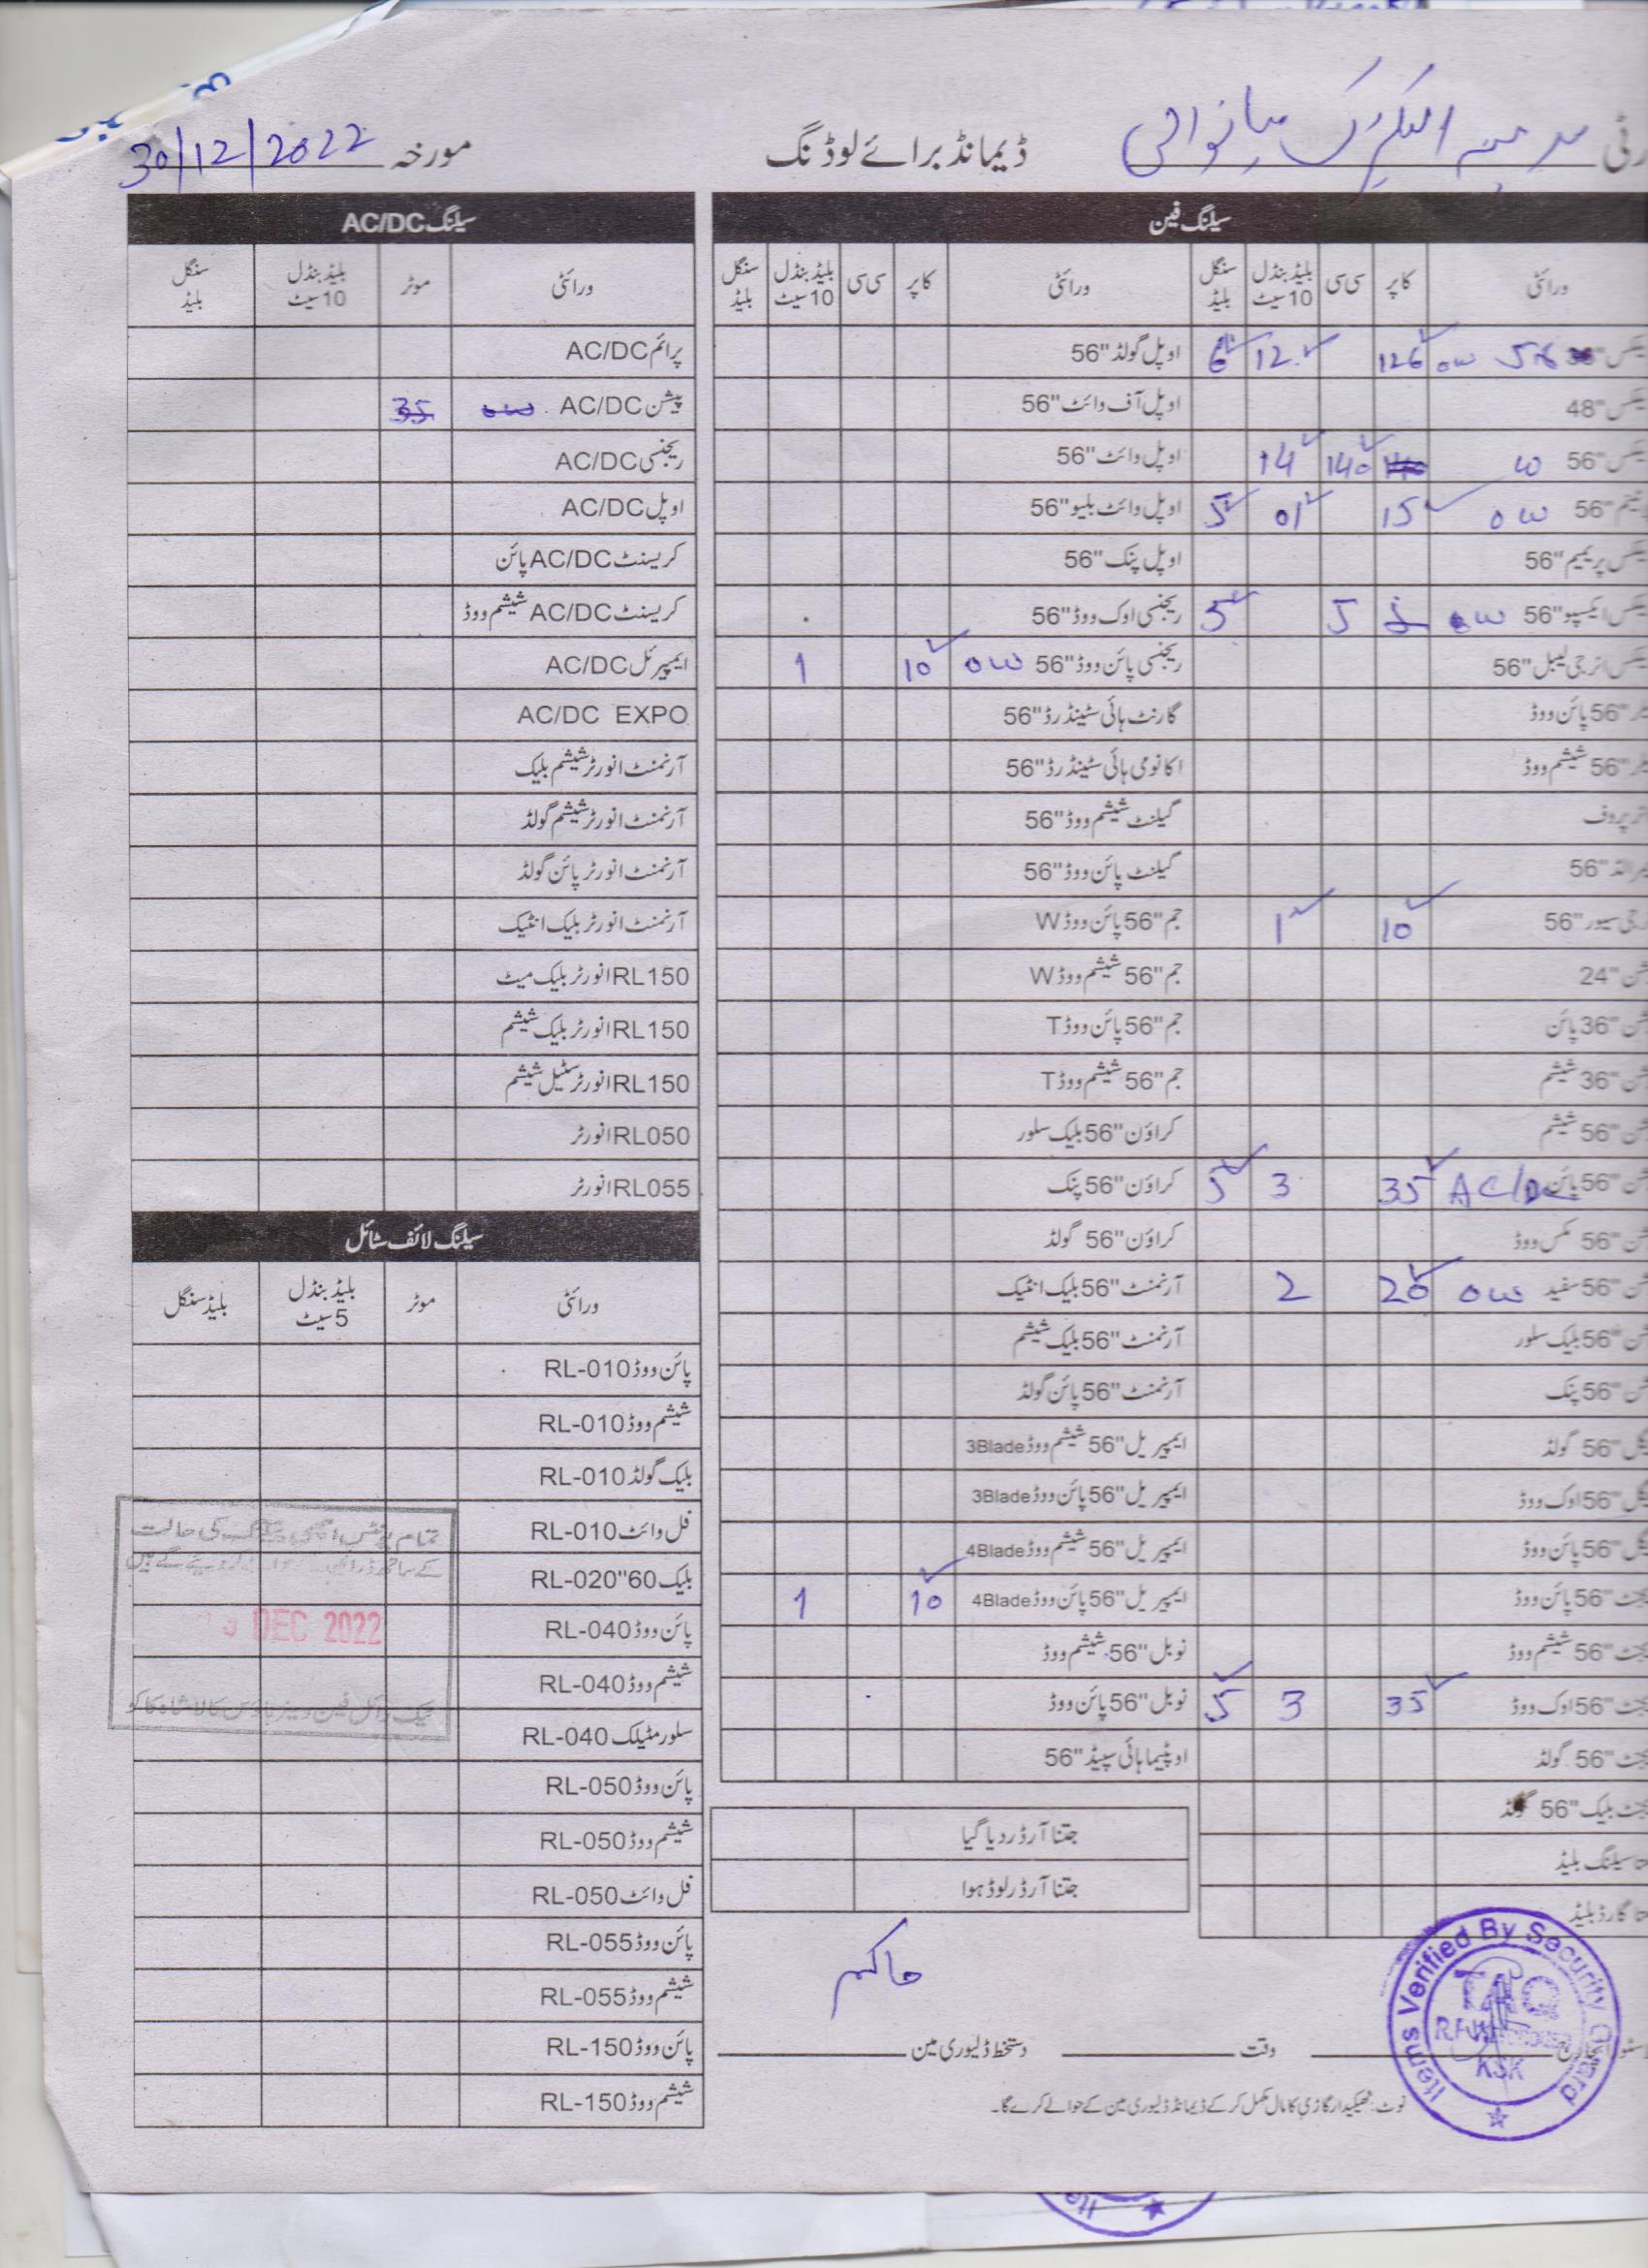 مدینہ الیکٹرک میانوالی
ڈیمانڈ برائے لوڈنگ
مورخہ 30/12/2022
سیلنگ فین
ورائٹی کاپر سی سی بلیڈ بنڈل 10 سیٹ سنگل بلیڈ
56" 5x ow 126 12 6
48"
56" w 140 14
56" ow 15 01 5
پریمیم 56"
ایکسپو 56" ow 5 5
انرجی لیبل 56"
56" پائن ووڈ
56" شیشم ووڈ
پروف
56"
سیور 56" 10 1
24"
36" پائن
36" شیشم
56" شیشم
56" پائن AC/DC 35 3 5
56" مکس ووڈ
56" سفید ow 20 2
56" بلیک سلور
56" پنک
56" گولڈ
56" اوک ووڈ
56" پائن ووڈ
56" پائن ووڈ
56" شیشم ووڈ
56" اوک ووڈ 35 3 5
56" گولڈ
بلیک 56" گولڈ
سیلنگ بلیڈ
گارڈ بلیڈ
ورائٹی کاپر سی سی بلیڈ بنڈل 10 سیٹ سنگل بلیڈ
اوپل گولڈ 56"
اوپل آف وائٹ 56"
اوپل وائٹ 56"
اوپل وائٹ بلیو 56"
اوپل پنک 56"
ریجنسی اوک ووڈ 56"
ریجنسی پائن ووڈ 56" ow 10 1
گارنٹ ہائی سٹینڈرڈ 56"
اکانومی ہائی سٹینڈرڈ 56"
گیلنٹ شیشم ووڈ 56"
گیلنٹ پائن ووڈ 56"
جم 56" پائن ووڈ W
جم 56" شیشم ووڈ W
جم 56" پائن ووڈ T
جم 56" شیشم ووڈ T
کراؤن 56" بلیک سلور
کراؤن 56" پنک
کراؤن 56" گولڈ
آرنمنٹ 56" بلیک انٹیک
آرنمنٹ 56" بلیک شیشم
آرنمنٹ 56" پائن گولڈ
ایمپریل 56" شیشم ووڈ 3Blade
ایمپریل 56" پائن ووڈ 3Blade
ایمپریل 56" شیشم ووڈ 4Blade
ایمپریل 56" پائن ووڈ 4Blade 10 1
نوبل 56" شیشم ووڈ
نوبل 56" پائن ووڈ
اوپٹیما ہائی سپیڈ 56"
جتنا آرڈر دیا گیا
جتنا آرڈر لوڈ ہوا
سیلنگ AC/DC
ورائٹی موٹر بلیڈ بنڈل 10 سیٹ سنگل بلیڈ
پرائم AC/DC
پیشن AC/DC ow 35
ریجنسی AC/DC
اوپل AC/DC
کریسنٹ AC/DC پائن
کریسنٹ AC/DC شیشم ووڈ
ایمپرئل AC/DC
AC/DC EXPO
آرنمنٹ انورٹر شیشم بلیک
آرنمنٹ انورٹر شیشم گولڈ
آرنمنٹ انورٹر پائن گولڈ
آرنمنٹ انورٹر بلیک انٹیک
RL150 انورٹر بلیک میٹ
RL150 انورٹر بلیک شیشم
RL150 انورٹر سٹیل شیشم
RL050 انورٹر
RL055 انورٹر
سیلنگ لائف سٹائل
ورائٹی موٹر بلیڈ بنڈل 5 سیٹ بلیڈ سنگل
پائن ووڈ RL-010
شیشم ووڈ RL-010
بلیک گولڈ RL-010
فل وائٹ RL-010
بلیک 60" RL-020
پائن ووڈ RL-040
شیشم ووڈ RL-040
سلور مٹیلک RL-040
پائن ووڈ RL-050
شیشم ووڈ RL-050
فل وائٹ RL-050
پائن ووڈ RL-055
شیشم ووڈ RL-055
پائن ووڈ RL-150
شیشم ووڈ RL-150
تمام کی حالت
کے ساتھ
DEC 2022
حاکم
وقت
دستخط ڈلیوری مین
نوٹ: ٹھیکیدار گاڑی کا مال مکمل کر کے ڈیمانڈ ڈلیوری مین کے حوالے کرے گا۔
Items Verified By Security Guard
KSK